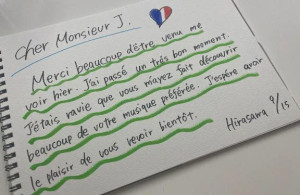 Cher Monsieur J.
Merci beaucoup d'être venu me
voir hier. J'ai passé un très bon moment.
J'étais ravie que vous m'ayez fait découvrir
beaucoup de votre musique préférée. J'espère avoir
le plaisir de vous revoir bientôt.
Hirasawa 9/15